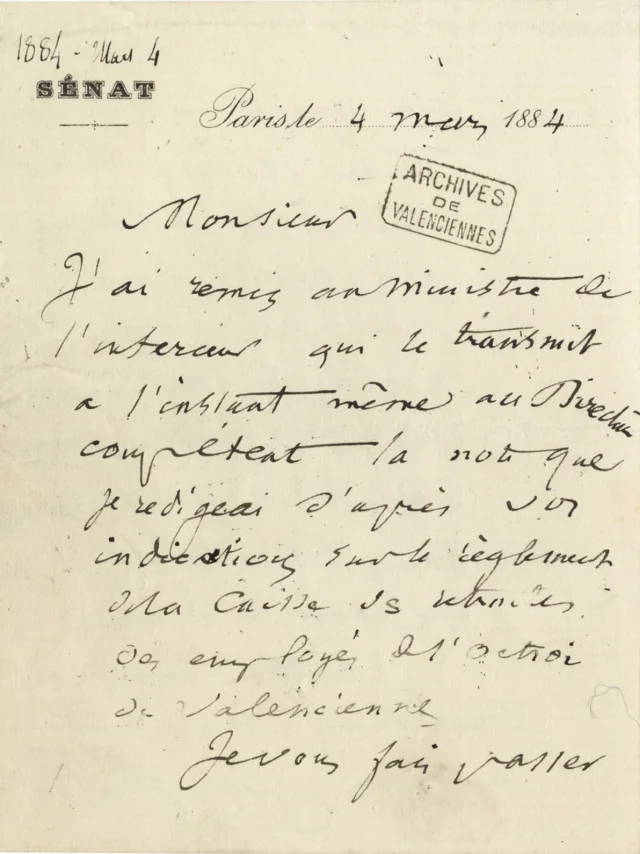 1884 - Mars 4
SÉNAT
Paris, le 4 mars 1884
ARCHIVES
DE
VALENCIENNES
Monsieur
J'ai remis au Ministre de
l'interieur qui le transmit
a l'instant même au Directeur
compétent la note que
je redigeai d'après vos
indications sur le règlement
de la Caisse des retraites
des employés de l'octroi
de Valencienne
Je vous fais passer